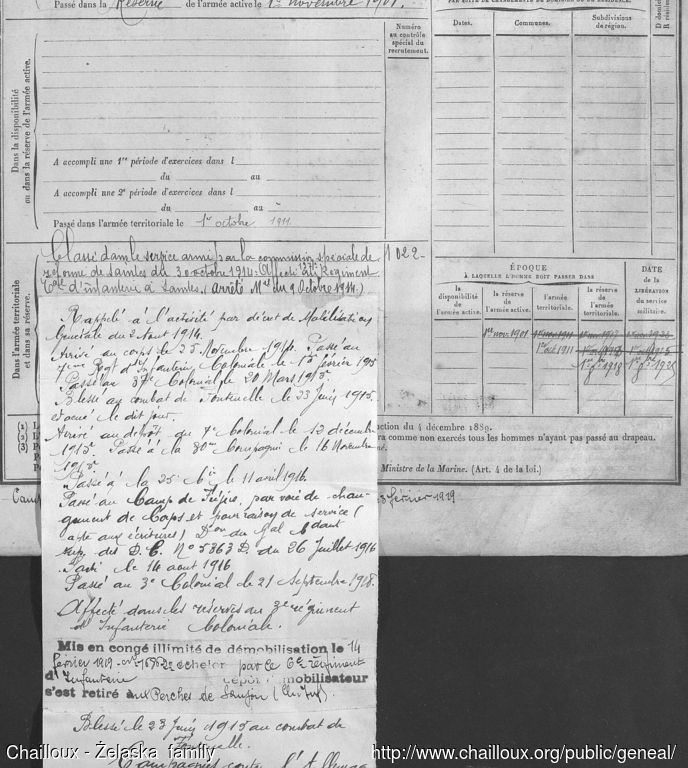 Passé dans la Réserve de l'armée active le 1er novembre 1901.
Numéro
au contrôle
spécial du
recrutement.
Dates.
Communes.
Subdivisions
de région.
Dans la disponibilité
ou dans la réserve de l'armée active.
A accompli une 1re période d'exercices dans l
du au
A accompli une 2e période d'exercices dans l
du au
Passé dans l'armée territoriale le 1er octobre 1911.
Dans l'armée territoriale
et dans sa réserve.
Classé dans le service armé par la commission spéciale de
réforme de Saintes du 30 octobre 1914. Affecté au Régiment
d'infanterie à Saintes. (arrêté Mel du 9 Octobre 1914.)
1022
ÉPOQUE
À LAQUELLE L'HOMME DOIT PASSER DANS
DATE
de la
LIBÉRATION
du service
militaire.
la
disponibilité
de l'armée active.
la réserve
de
l'armée active.
l'armée
territoriale.
la réserve
de l'armée
territoriale.
1er nov. 1901
1er oct 1911
Rappelé à l'activité par décret de Mobilisation
Générale du 2 Aout 1914.
Arrivé au corps le 25 Novembre 1914. Passé au
7eme Regt d'Infanterie Coloniale le 15 février 1915
Passé au 37e Colonial le 20 Mars 1915
Blessé au combat de Fontenelle le 23 Juin 1915.
Evacué le dit jour.
Arrivé au dépôt du 7e Colonial le 12 décembre
1915. Passé à la 80me Compagnie le 16 Novembre
1915
Passé à la 25e Cie le 11 avril 1916.
Passé au Camp de Fréjus, par voie de chan-
gement de Corps et pour raison de service (
apte aux écritures) Don du Gal Cdant
sup. des D. C. No 5863 D. du 26 Juillet 1916
Parti le 14 aout 1916
Passé au 3e Colonial le 21 Septembre 1918.
Affecté dans les réserves au 3e régiment
d'Infanterie Coloniale.
ction du 4 décembre 1889.
ra comme non exercés tous les hommes n'ayant pas passé au drapeau.
Ministre de la Marine. (Art. 4 de la loi.)
février 1919
Mis en congé illimité de démobilisation le 14
février 1919 échelon par le 6e régiment
d'Infanterie dépôt démobilisateur
s'est retiré aux Perches de Saujon (Ch. Inf).
Blessé le 23 Juin 1915 au combat de
Fontenelle.
Campagnes contre l'Allemag
Chailloux - Żelaska family
http://www.chailloux.org/public/geneal/